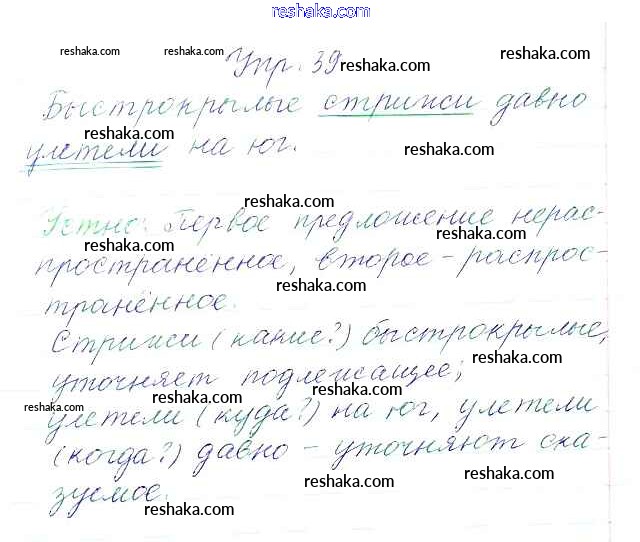 reshaka.com
reshaka.com reshaka.com reshaka.com
Упр. 39 reshaka.com
Быстрокрылые стрижи давно
reshaka.com
улетели на юг. reshaka.com
reshaka.com
Устно: Первое предложение нерас-
reshaka.com reshaka.com
пространённое, второе - распрос-
reshaka.com
транённое.
Стрижи (какие?) быстрокрылые,
reshaka.com reshaka.com
уточняет подлежащее;
reshaka.com
улетели (куда?) на юг, улетели
reshaka.com
(когда?) давно - уточняют ска-
reshaka.com
зуемое.
reshaka.com